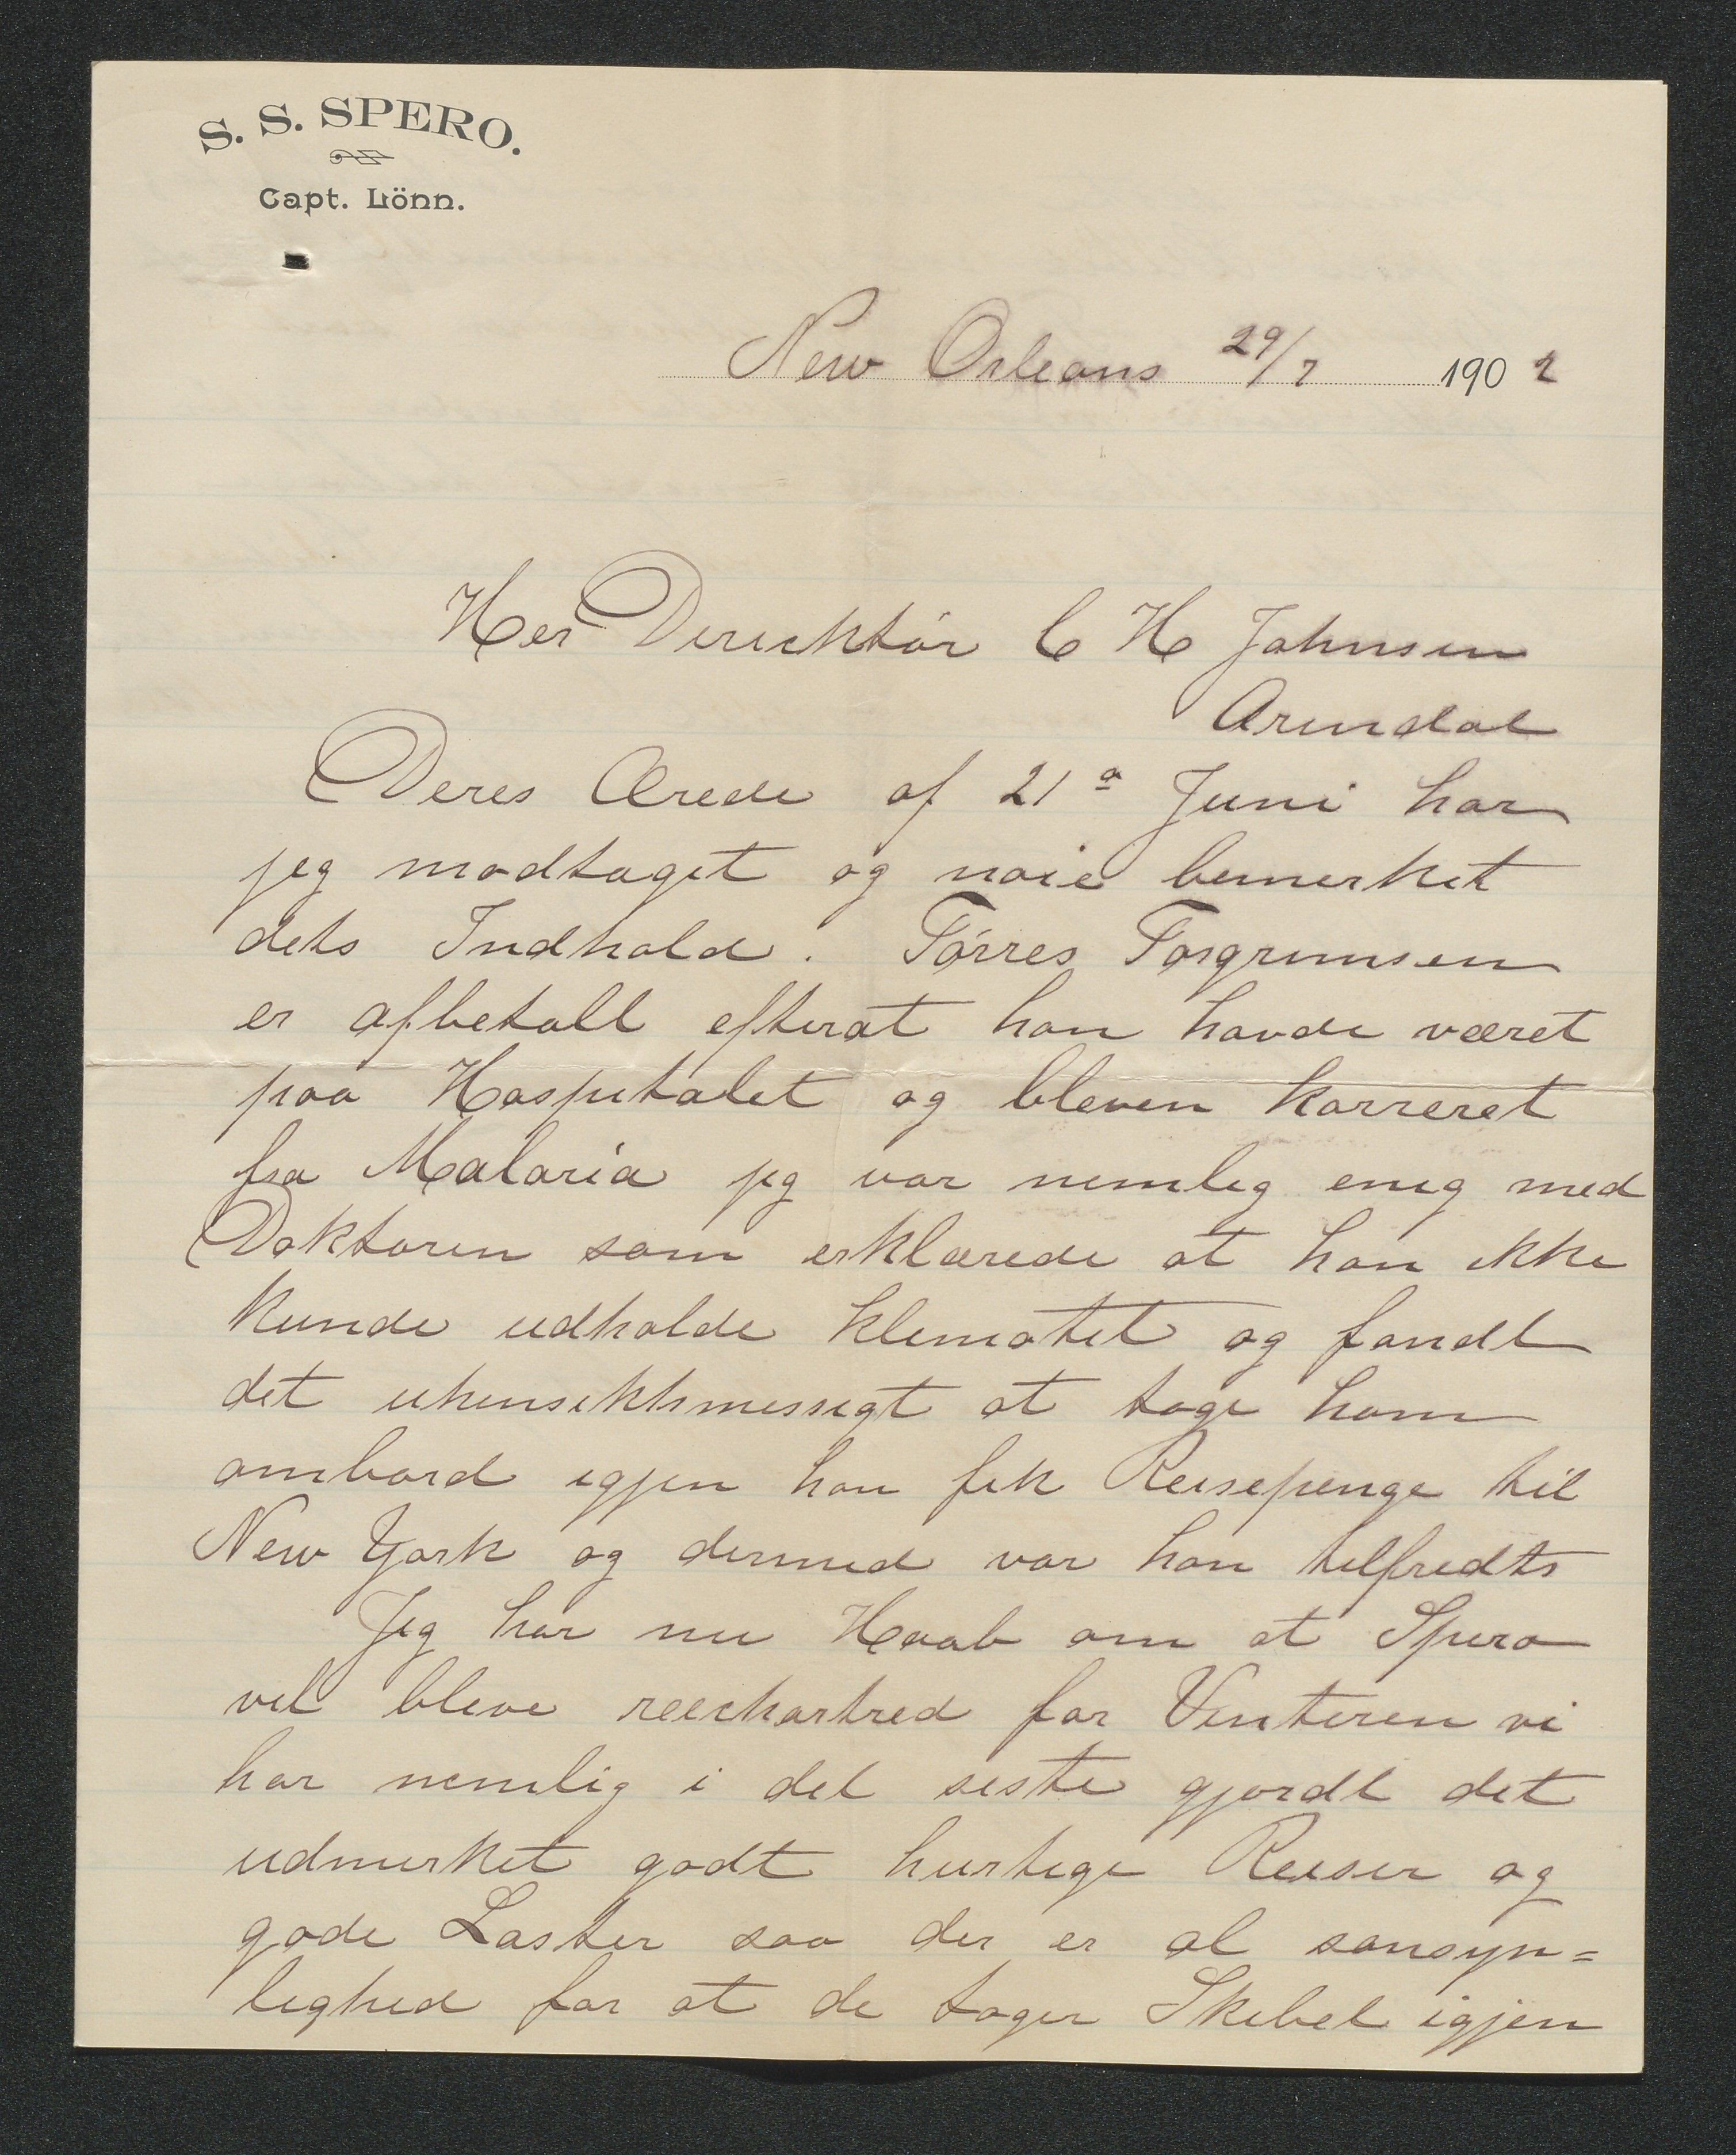 S. S. SPERO.
Capt. Lönn.
New Orleans 29/7 1902
Her Direcktör C H Johnsen
Arendal
Deres Ærede af 21ᵒ Juni har
jeg modtaget og nöie bemerket
dets Indhold. Törres Torgrimsen
er afbetalt efterat han havde været
paa Hospitalet og bleven korreret
fra Malaria jeg var nemlig enig med
Doktoren som erklærede at han ikke
kunde udholde klimatet og fandt
det uhensiktsmessigt at tage ham
ombord igjen han fik Reisepenge til
New York og dermed var han tilfredts
Jeg har nu Haab om at Spero
vil blive reechartred for Vinteren vi
har nemlig i det siste gjordt det
udmerket godt hurtige Reiser og
gode Laster saa der er al sansyn=
lighed for at de tager Skibet igjen